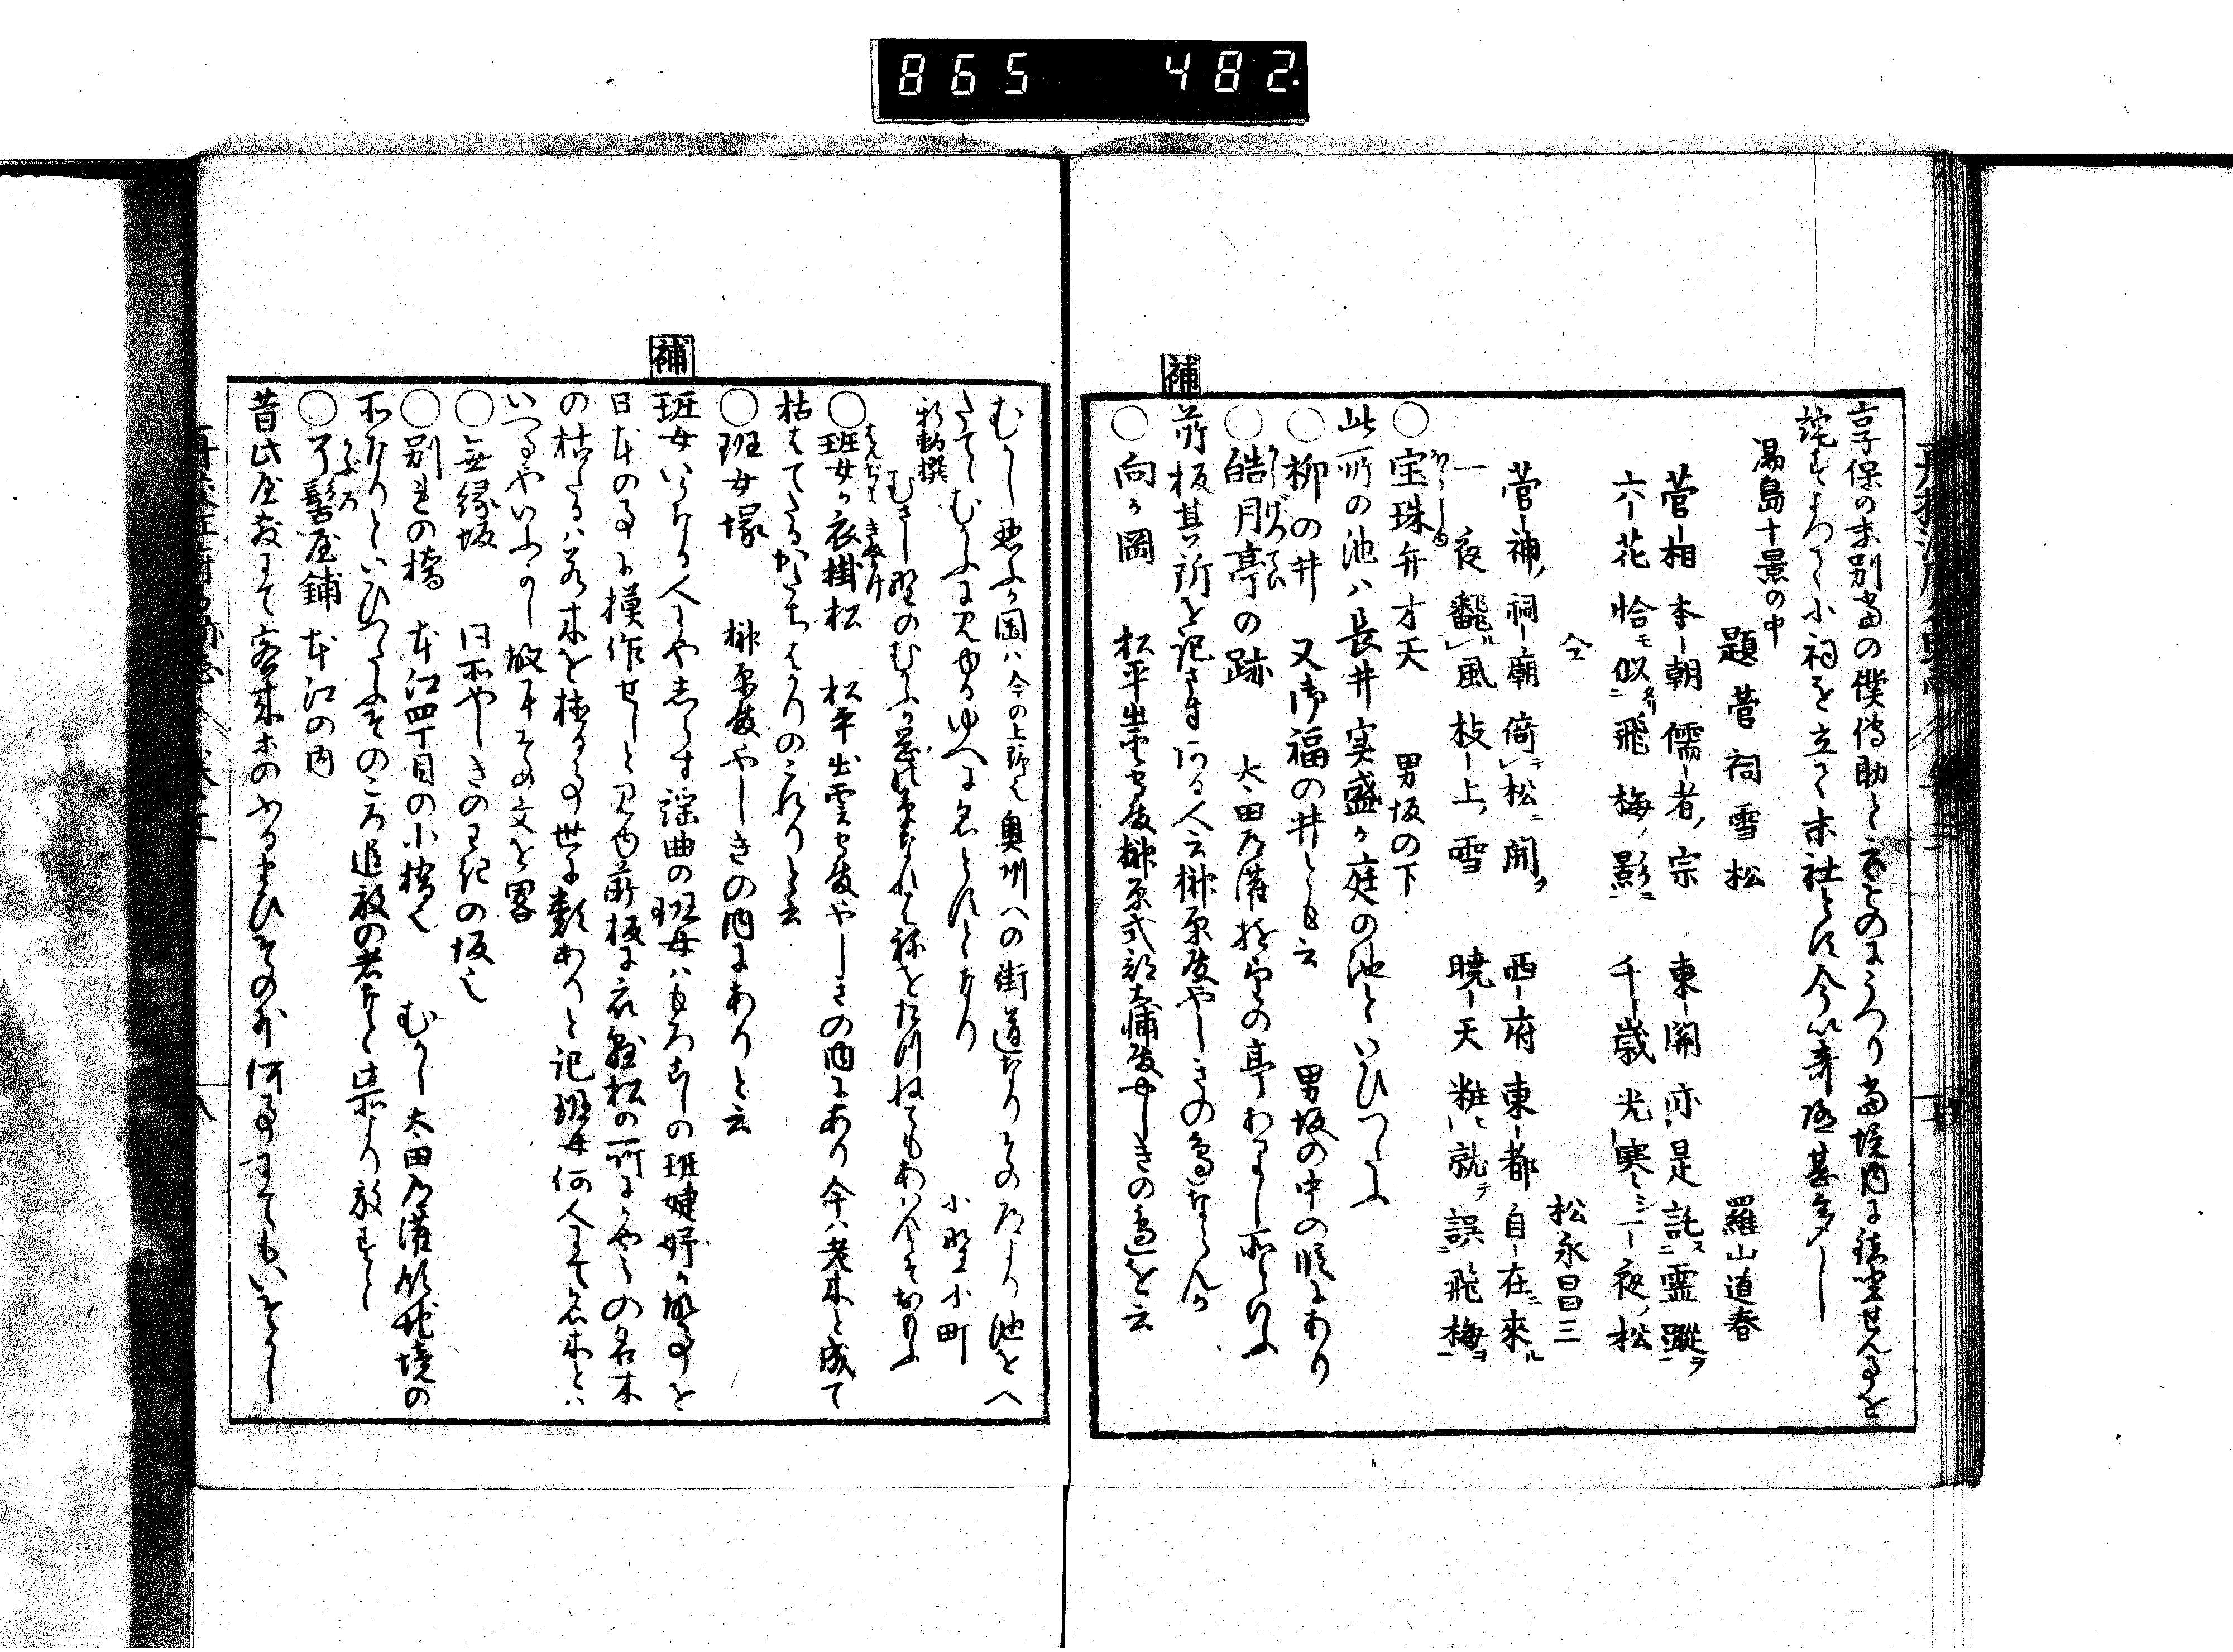 865 482.
享保の末別当の僕伝助と云ものにうつり当境内に鎮坐せん事を
詫すよつて小祠を立て末社とす今以寄瑞甚多し
湯島十景の中
題菅祠雪松 羅山道春
菅相本朝儒者宗 東関亦是託霊蹤
六花恰似飛梅影 千歳光寒一夜松
仝 松永昌三
菅神祠廟倚松開 西府東都自在来
一夜飜風枝上雪 暁天粧就誤飛梅
○宝珠弁才天 男坂の下
此所の池ハ長井実盛か庭の池といひつたふ
○柳の井 又御福の井とも云 男坂の中の段にあり
○皓月亭の跡 太田道灌
補
前板其所を記さす或る人云榊原殿やしきの辺ならんか
○向か岡 松平出雲守殿榊原式部大輔殿やしきの辺を云
むかし忍ふか岡ハ今の上野也奥州への街道なりその道より池をへ
たてゝむかふに見ゆるゆへに名とすとなり
新勅撰 小野小町
むさし野のむかふか岡の草なれハ根をたつねてもあハれとそおもふ
○班女か衣掛松 松平出雲守殿やしきの内にあり今ハ老木と成て
枯はてたるかたちはかりのこれりと云
○班女塚 榊原殿やしきの内にありと云
補
班女いかなる人にやしらす謡曲の班女ハもろこしの班婕妤か故事を
日本の事に模作せしと見ゆ前板に衣懸松の所にかやうの名木
の枯たるハ若木を植る事世に類ありと記班女何人にて名木とハ
いつるやいふかし故にその文を略
○無縁坂 同所やしきのわきの坂也
○別れの橋 本江四丁目の小橋也 むかし太田道灌領地境の
所なりといひつたふそのころ追放の者など此所より放すと
○了髻屋鋪 本江の内
昔此屋敷にて客来等のふるまひその外何事にてもいそかし